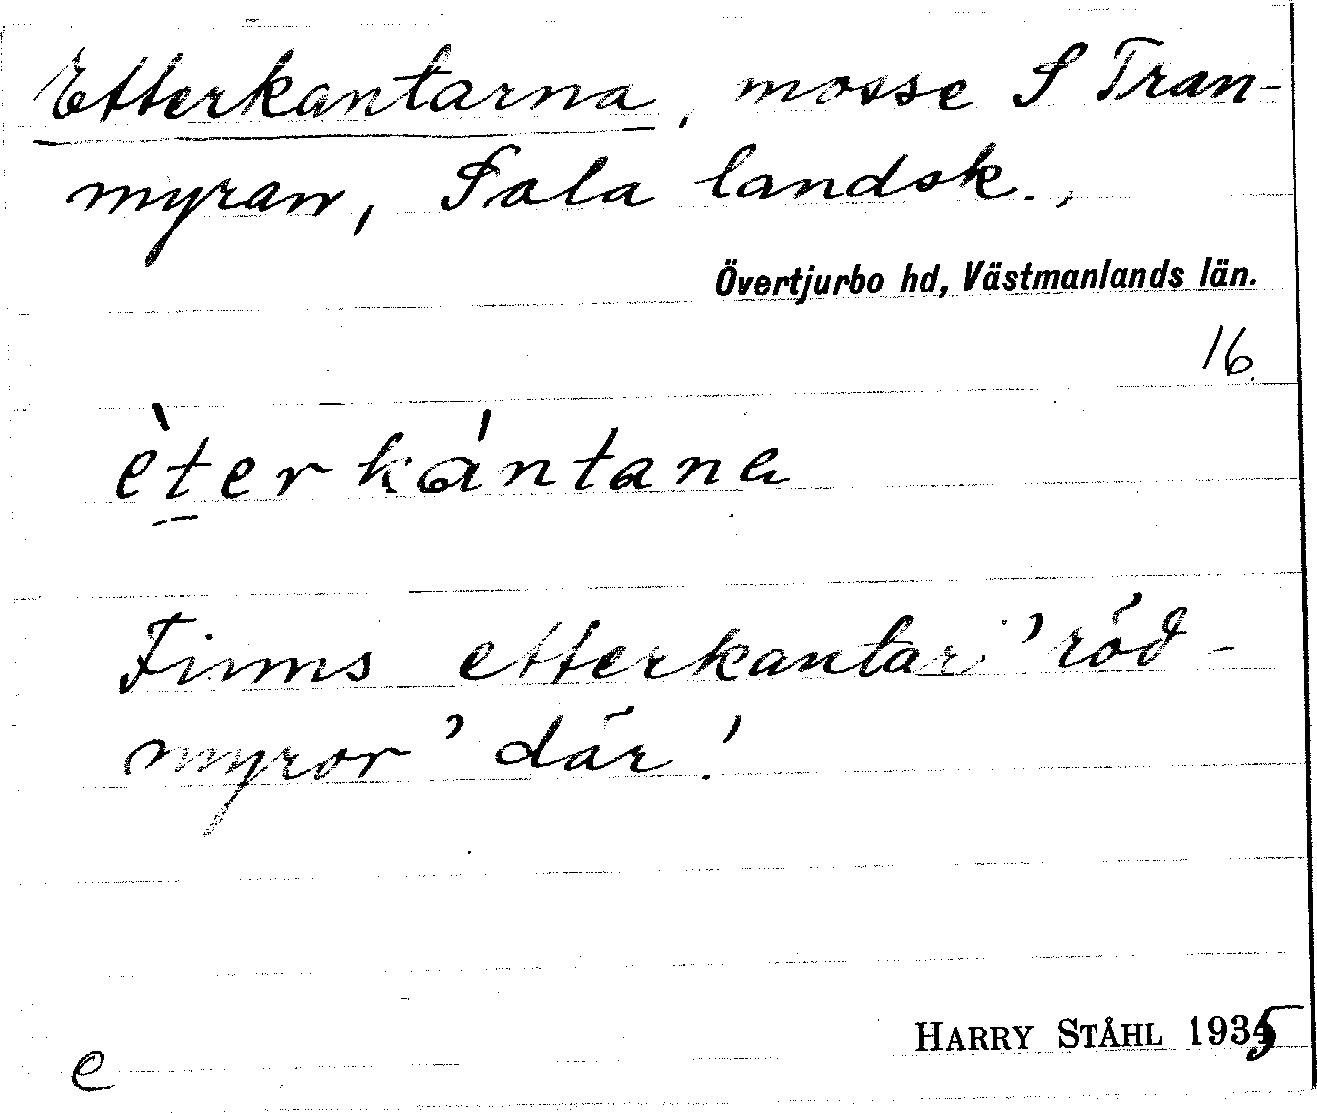 Etterkantarna, mosse S Tran-
myran, Sala landsk.,
Övertjurbo hd, Västmanlands län.
16.
èterkántana
Finns etterkantar 'röd-
myror' där!
HARRY STÅHL 1935
e